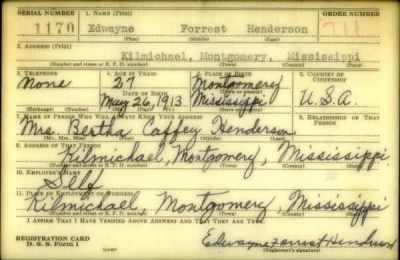 SERIAL NUMBER 1. NAME (Print) ORDER NUMBER
1170 Edwayne Forrest Henderson 711
(First) (Middle) (Last)
2. ADDRESS (Print)
Kilmichael, Montgomery, Mississippi
(Number and street or R. F. D. number) (Town) (County) (State)
3. TELEPHONE 4. AGE IN YEARS 5. PLACE OF BIRTH 6. COUNTRY OF CITIZENSHIP
None 27 Montgomery
DATE OF BIRTH (Town or county)
May 26, 1913 Mississippi U.S.A.
(Exchange) (Number) (Mo.) (Day) (Yr.) (State or country)
7. NAME OF PERSON WHO WILL ALWAYS KNOW YOUR ADDRESS 8. RELATIONSHIP OF THAT PERSON
Mrs. Bertha Caffey Henderson
(Mr., Mrs., Miss) (First) (Middle) (Last)
9. ADDRESS OF THAT PERSON
Kilmichael, Montgomery, Mississippi
(Number and street or R. F. D. number) (Town) (County) (State)
10. EMPLOYER'S NAME
Self
11. PLACE OF EMPLOYMENT OR BUSINESS
Kilmichael, Montgomery, Mississippi
(Number and street or R. F. D. number) (Town) (County) (State)
I AFFIRM THAT I HAVE VERIFIED ABOVE ANSWERS AND THAT THEY ARE TRUE.
REGISTRATION CARD
D. S. S. Form 1 Edwayne Forrest Henderson
(Registrant's signature)